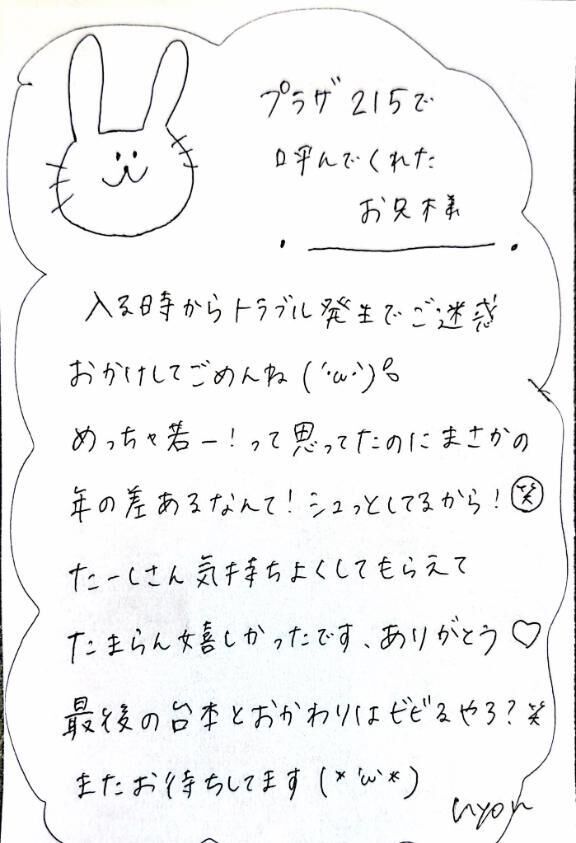 プラザ215で
呼んでくれた
お兄様
入る時からトラブル発生でご迷惑
おかけしてごめんね(´･ω･`)
めっちゃ若ー!って思ってたのにまさかの
年の差あるなんて!シュっとしてるから!笑
たーくさん気持ちよくしてもらえて
たまらん嬉しかったです、ありがとう♡
最後の台本とおかわりはビビるやろ?笑
またお待ちしてます(*'ω'*)